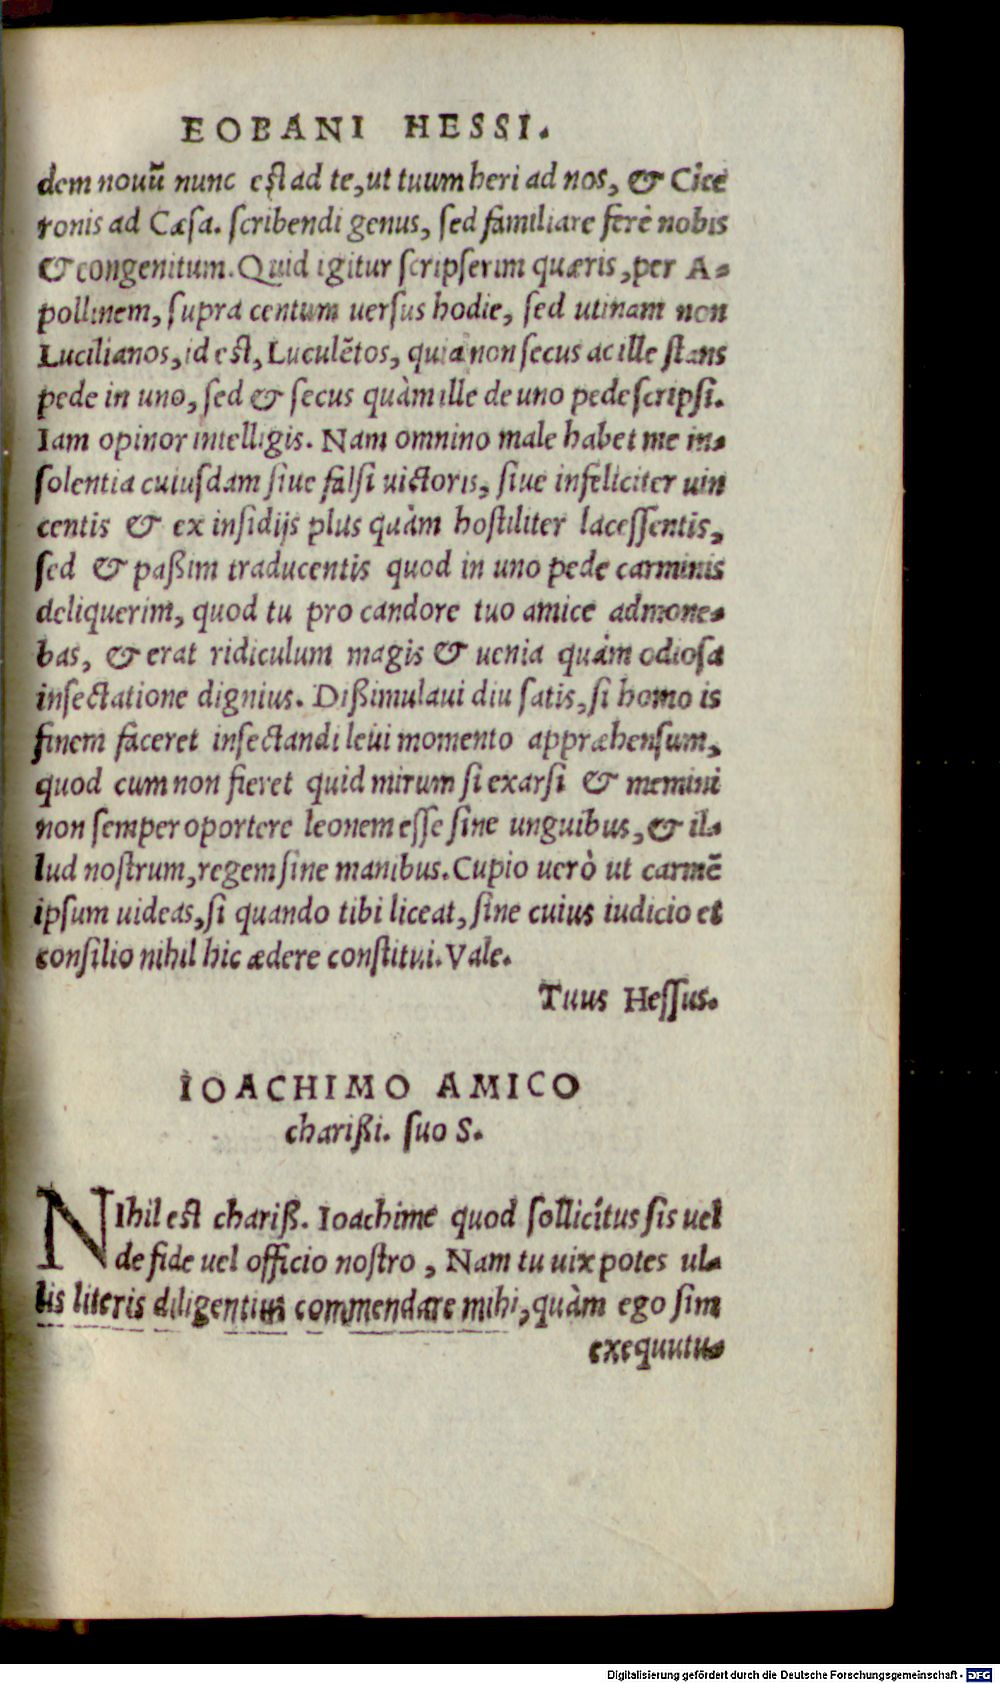 EOBANI HESSI.
dem nouũ nunc est ad te, ut tuum heri ad nos, & Cice
ronis ad Cæsa. scribendi genus, sed familiare ferè nobis
& congenitum. Quid igitur scripserim quæris, per A-
pollinem, supra centum uersus hodie, sed utinam non
Lucilianos, id est, Luculẽtos, quia non secus ac ille stans
pede in uno, sed & secus quàm ille de uno pede scripsi.
Iam opinor intelligis. Nam omnino male habet me in-
solentia cuiusdam siue falsi uictoris, siue infeliciter uin
centis & ex insidijs plus quàm hostiliter lacessentis,
sed & paßim traducentis quod in uno pede carminis
deliquerim, quod tu pro candore tuo amice admone-
bas, & erat ridiculum magis & uenia quàm odiosa
insectatione dignius. Dißimulaui diu satis, si homo is
finem faceret insectandi leui momento appræhensum,
quod cum non fieret quid mirum si exarsi & memini
non semper oportere leonem esse sine unguibus, & il-
lud nostrum, regem sine manibus. Cupio uerò ut carmẽ
ipsum uideas, si quando tibi liceat, sine cuius iudicio et
consilio nihil hic ædere constitui. Vale.
Tuus Hessus.
IOACHIMO AMICO
charißi. suo S.
NIhil est chariß. Ioachime quod sollicitus sis uel
de fide uel officio nostro, Nam tu uix potes ul-
lis literis diligentius commendare mihi, quàm ego sim
exequutu-
Digitalisierung gefördert durch die Deutsche Forschungsgemeinschaft - DFG